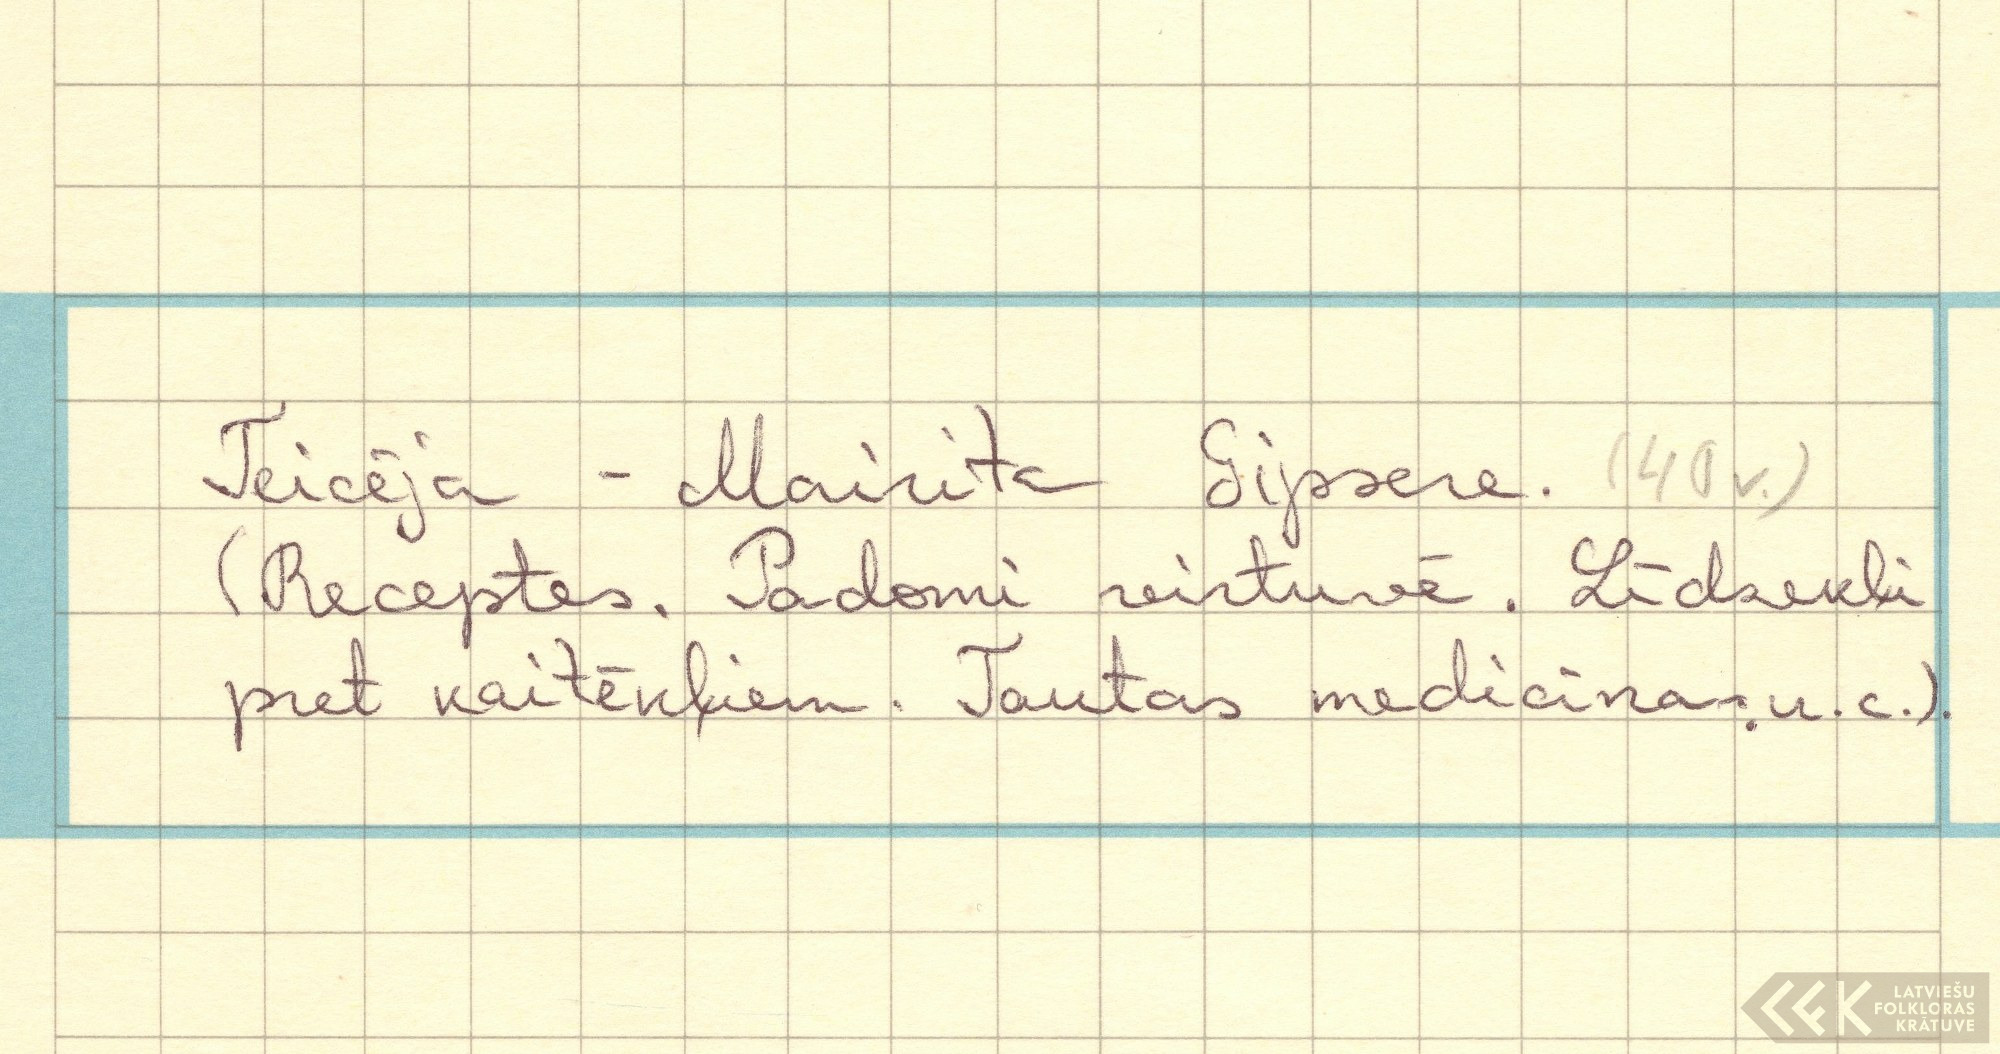 Teicēja - Mairita Gipsere. (40 v.)
(Receptes. Padomi virtuvē. Līdzekļi
pret kaitēkļiem. Tautas medicīna. u.c.).
LATVIEŠU
FOLKLORAS
KRĀTUVE